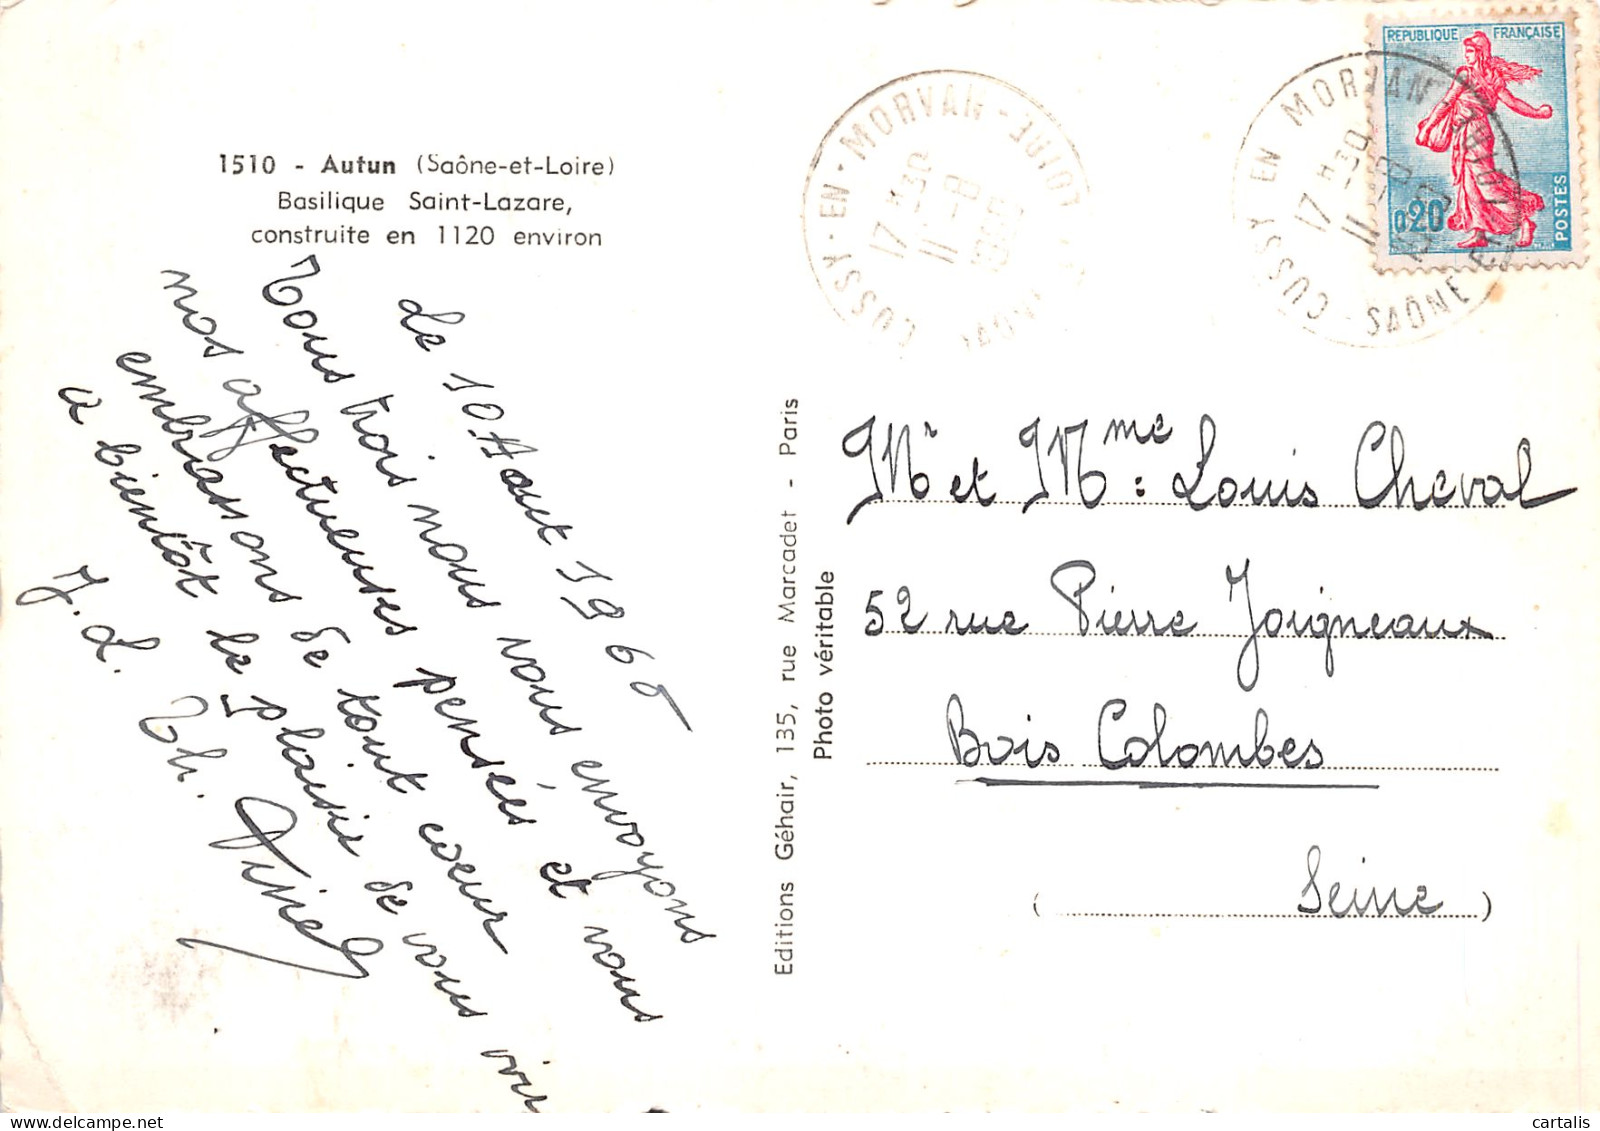 1510 - Autun (Saône-et-Loire)
Basilique Saint-Lazare,
construite en 1120 environ
Le 10. Août 1960
Tous trois nous vous envoyons
nos affectueuses pensées et vous
embrassons de tout cœur
à bientôt le plaisir de vous voir
J. L. Th.
Editions Géhair, 135, rue Marcadet - Paris
Photo véritable
CUSSY-EN-MORVAN
17 H 30
11 - 8
CUSSY EN MORVAN
SAÔNE ET LOIRE
17 H 30
11 - 8
REPUBLIQUE FRANÇAISE
0,20
POSTES
Mr et Mme: Louis Cheval
52 rue Pierre Joigneaux
Bois Colombes
( Seine )
cartalis